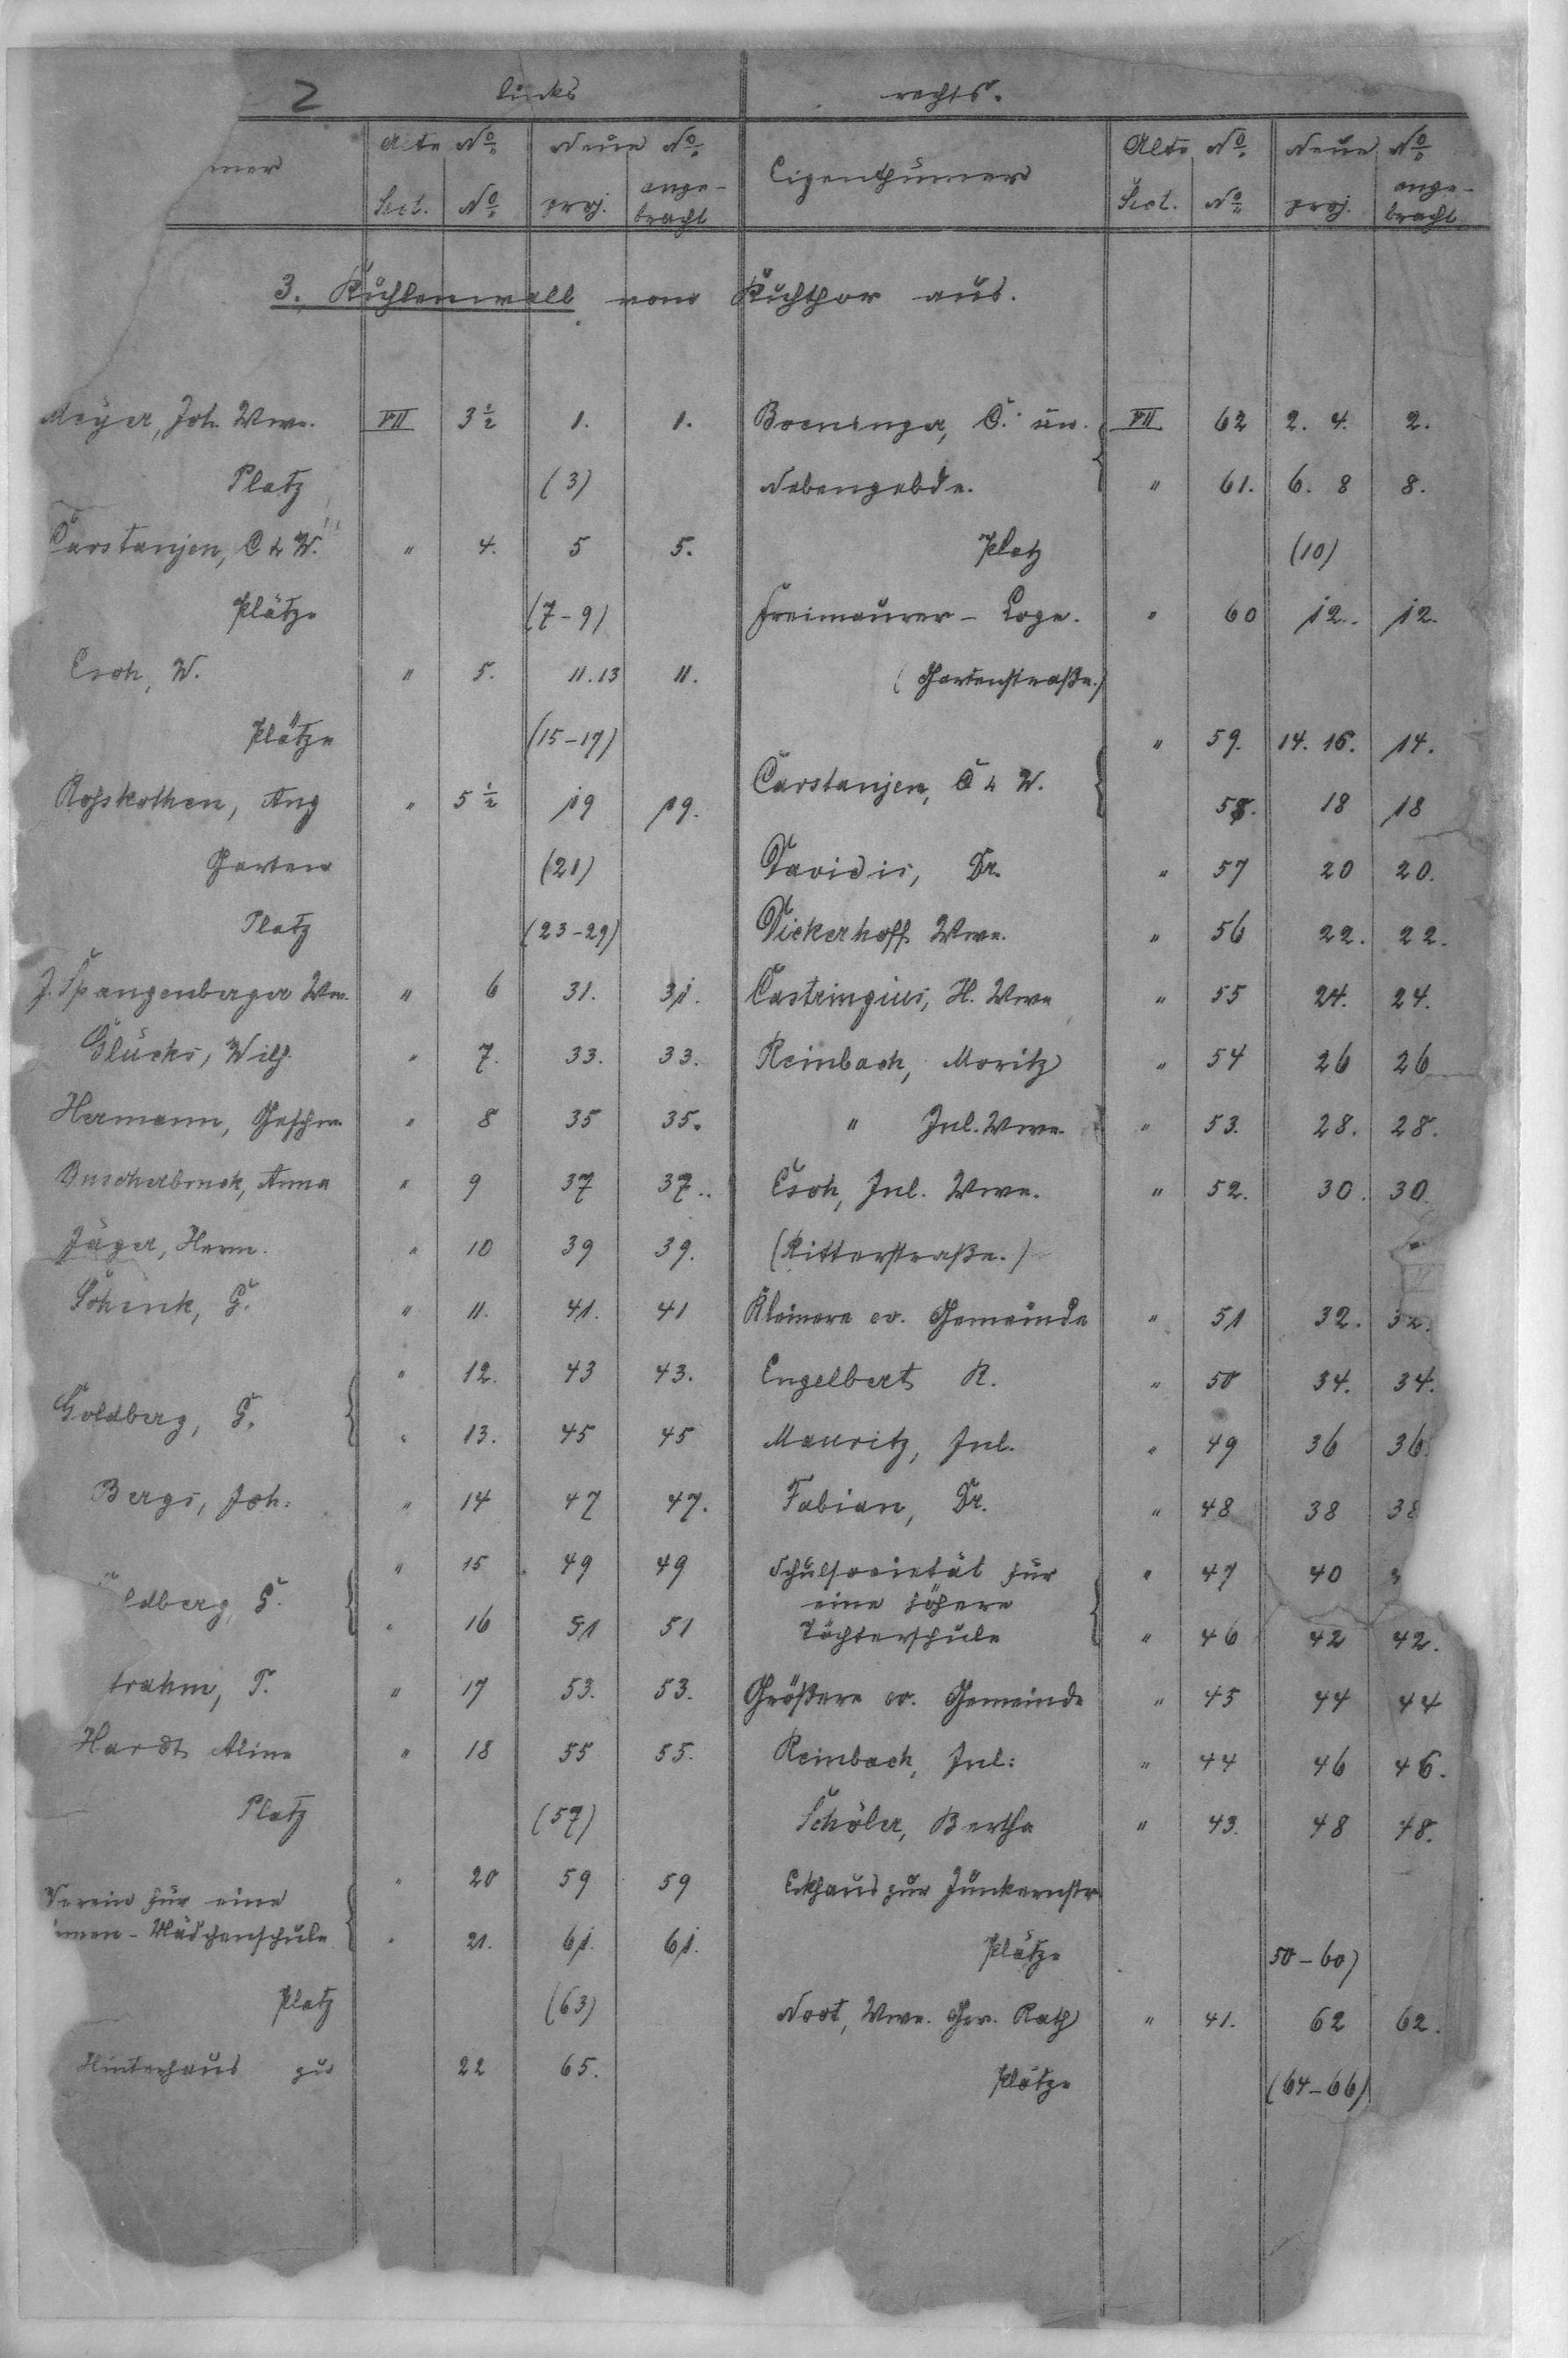 2 links rechts.
Alte No. Neue No. Alte No. Neue No.
mer Sect. No. proj. ange- bracht Eigenthümer Sect. No. proj. ange- bracht
3. Kuhlenwall vom Kuhthor aus.
Meyer, Joh. Wwe. VII 3 1/2 1. 1. Boeninger, C. un. VII 62 2. 4. 2.
Platz (3) Nebengebde. " 61. 6. 8 8.
Carstanjen, C & W. " 4. 5 5. Platz (10)
Plätze (7-9) Freimaurer - Loge. " 60 12. 12.
Esch, W. " 5. 11.13 11. (Gartenstraße.)
Plätze (15-17) " 59. 14. 16. 14.
Carstanjen, C & W.
Roßkothen, Aug " 5 1/2 19 19. 58. 18 18
Garten (21) Davidis, Dr. " 57 20 20.
Platz (23-29) Dickerhoff Wwe. " 56 22. 22.
J. Spangenberger Wwe. " 6 31. 31. Castringius, H. Wwe " 55 24. 24.
Glücks, Wilh. " 7. 33. 33. Reinbach, Moritz " 54 26 26
Hermann, Geschw. " 8 35 35. " Jul. Wwe. " 53. 28. 28.
Buscherbruck, Anna " 9 37 37. Esch, Jul. Wwe. " 52. 30. 30.
Jäger, Herm. " 10 39 39. (Ritterstraße.)
Schenk, G. " 11. 41. 41 Kleinere ev. Gemeinde " 51 32. 32.
" 12. 43 43. Engelbert R. " 50 34. 34.
Goldberg, G.
" 13. 45 45 Mauritz, Jul. " 49 36 36.
Bergs, Joh: " 14 47 47. Fabian, Dr. " 48 38 38
" 15 49 49 Schulsocietät für " 47 40
ldberg, G. eine höhere
" 16 51 51 Töchterschule " 46 42 42.
trahm, T. " 17 53. 53. Größere ev. Gemeinde " 45 44 44
Hardt Aline " 18 55 55. Reinbach, Jul: " 44 46 46.
Platz (57) Schöler, Bertha " 43. 48 48.
" 20 59 59 Eckhaus zur Junkernstr
Verein für eine
men - Mädchenschule " 21. 61. 61. Plätze 50-60)
Platz (63) Noot, Wwe. Ger. Rath " 41. 62 62.
Hinterhaus zu 22 65. Plätze (64-66)